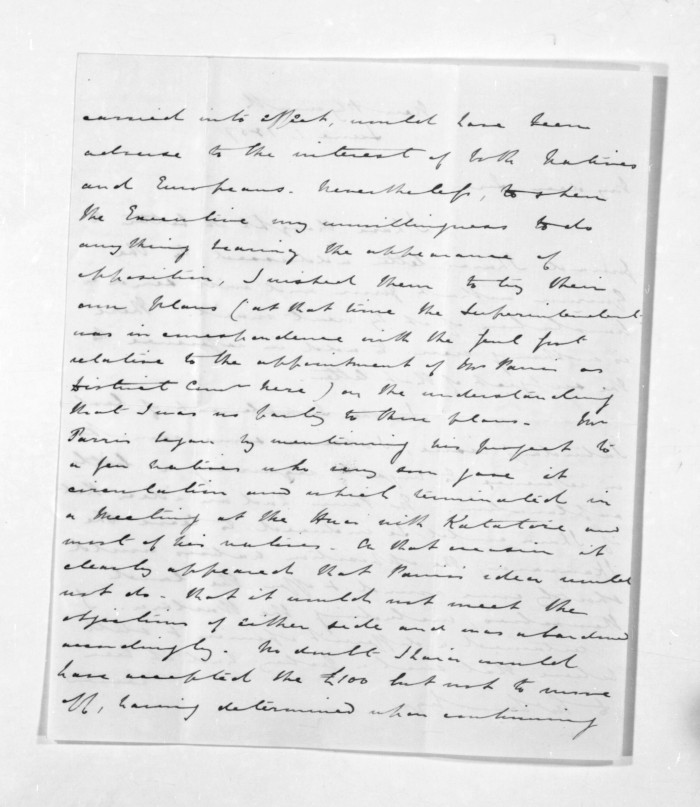 carried into effect, would have been
adverse to the interest of both Natives
and Europeans. Nevertheless, to shew
the Executive my unwillingness to do
anything bearing the appearance of
opposition, I wished them to try their
own plans (at that time the Superintendent
was in correspondence with the Genl Govt
relative to the appointment of Mr Parris as
District Comr here) on the understanding
that I was no party to those plans. Mr
Parris began by mentioning his project to
a few natives who very soon gave it
circulation and which terminated in
a meeting at the Huas with Katatore and
most of his natives. On that occasion it
clearly appeared that Parris idea would
not do - that it would not meet the
objections of either side and was abandoned
accordingly. No doubt Ihaia would
have accepted the £100 but not to move
off, having determined upon continuing